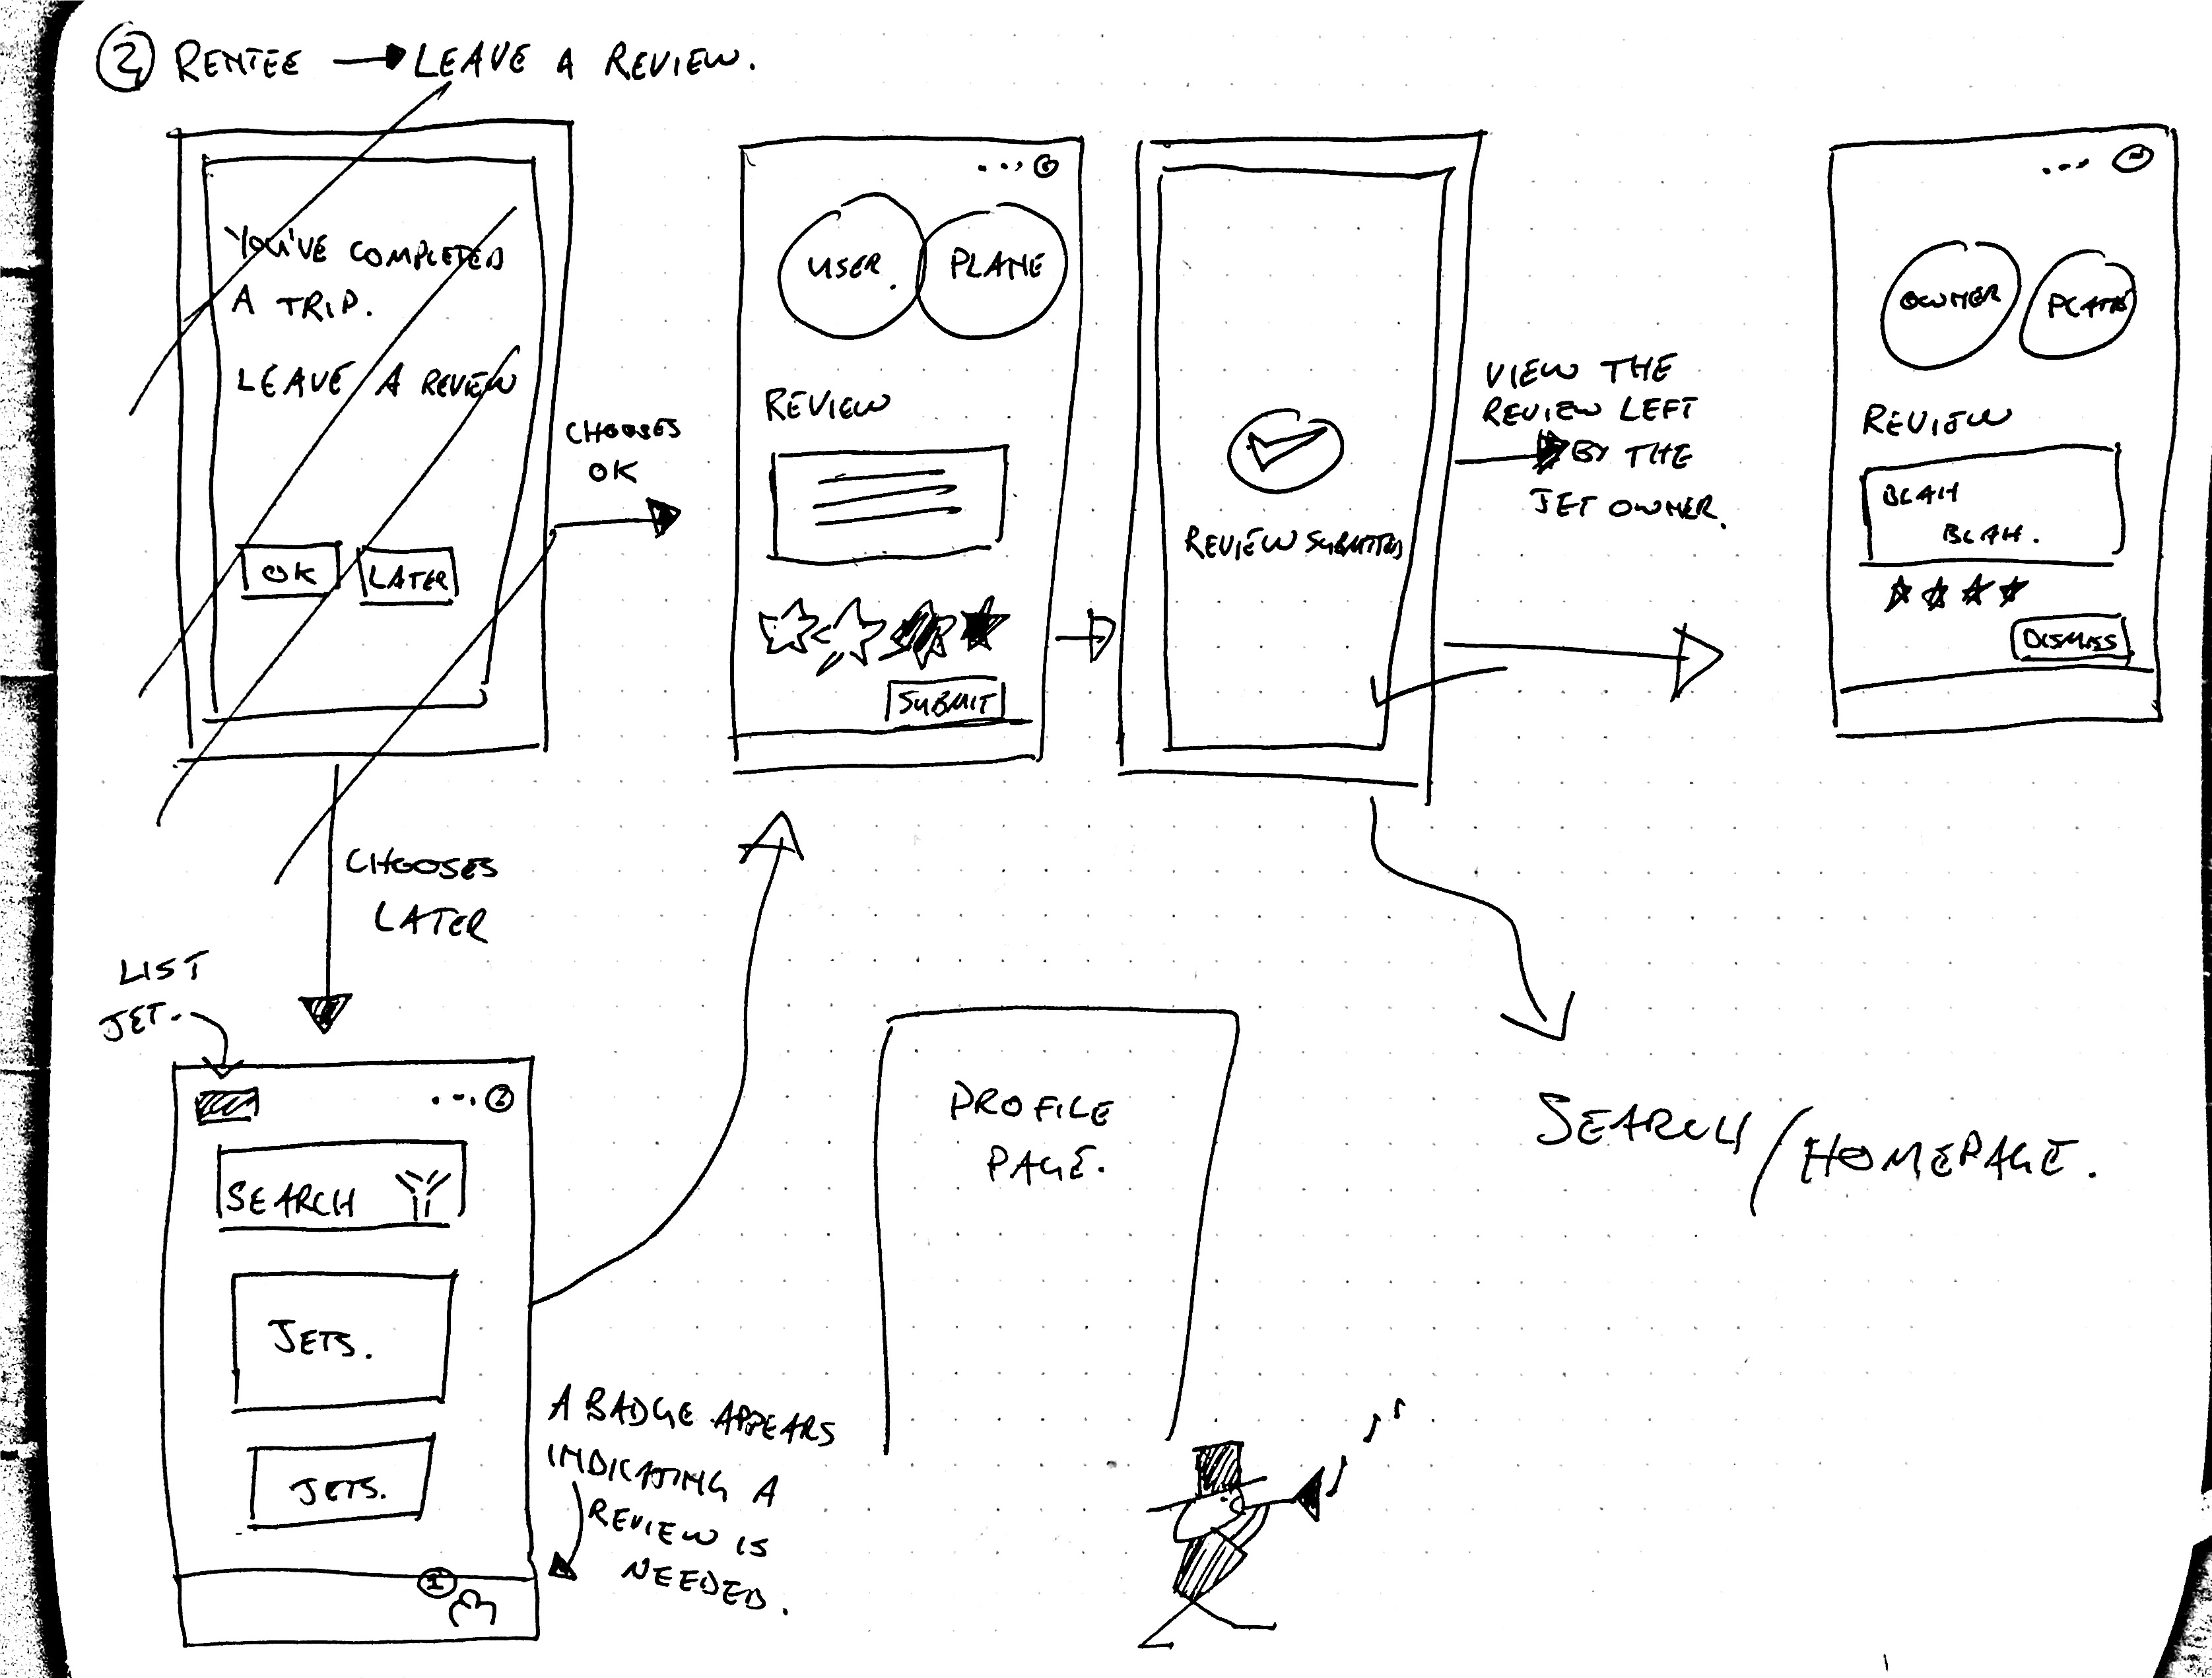 2 RENTEE → LEAVE A REVIEW.
YOU'VE COMPLETED
A TRIP.
LEAVE A REVIEW
OK LATER
CHOOSES
OK
USER. PLANE
REVIEW
SUBMIT
REVIEW SUBMITTED
VIEW THE
REVIEW LEFT
BY THE
JET OWNER.
OWNER PLANE
REVIEW
BLAH
BLAH.
DISMISS
CHOOSES
LATER
LIST
JET.
SEARCH
JETS.
JETS.
1
A BADGE APPEARS
INDICATING A
REVIEW IS
NEEDED.
PROFILE
PAGE.
SEARCH/HOMEPAGE.